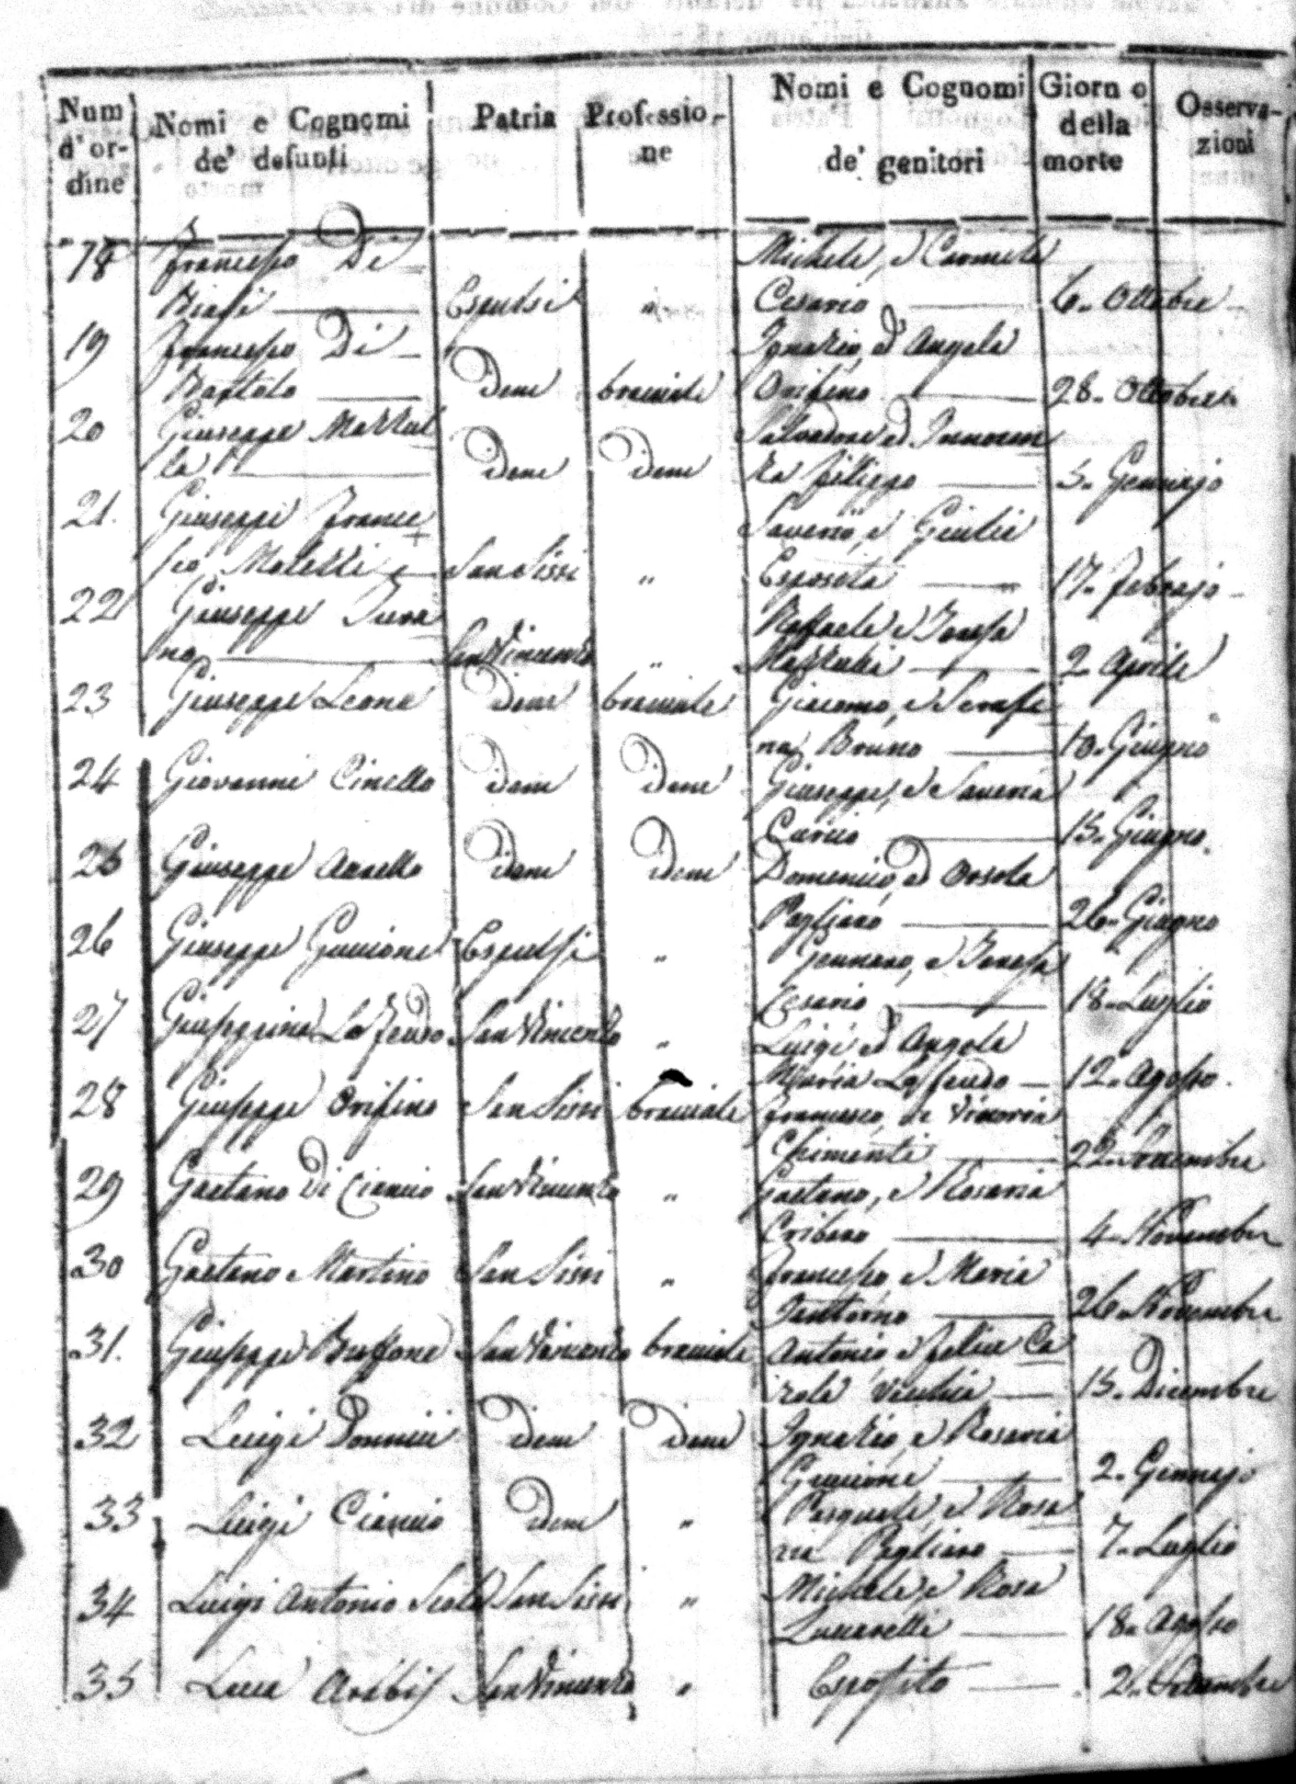 Num d'ordine Nomi e Cognomi de' defunti Patria Professione Nomi e Cognomi de' genitori Giorno della morte Osservazioni
18 Francesco Di Michele, e Carmela
Biasi Espulsi " Cesario 6. Ottobre
19 Francesco Di Ignazio, ed Angela
Bartolo Idem bracciale Orifino 28. Ottobre
20 Giuseppe Mazzul Salvadore ed Innocen
la Idem Idem za Filippo 5. Gennajo
21. Giuseppe France Saverio, e Giulia
sco Molezzi San Sisti " Esposita 17. Febrajo
22 Giuseppe Tura Raffaele e Teresa
no San Vincenzo " Mazzulli 2 Aprile
23 Giuseppe Leone Idem bracciale Giacomo, e Serafi
na Bruno 10. Giugno
24 Giovanni Cinello Idem Idem Giuseppe, e Saveria
Curcio 15. Giugno
25 Giuseppe Idem Idem Domenico, ed Orsola
Pagliaro 26. Giugno
26 Giuseppe Guccione Espulsi " Gennaro, e Teresa
Cesario 18. Luglio
27 Giuseppina Lo Feudo San Vincenzo " Luigi ed Angela
Maria Lo Feudo 12. Agosto
28 Giuseppe Orifino San Sisti bracciale Francesco, e Vittoria
Chimenti 22.
29 Gaetano Di Ciancio San Vincenzo " Gaetano, e Rosaria
Cribaro 4. Novembre
30 Gaetano Martino San Sisti " Francesco, e Maria
26. Novembre
31. Giuseppe Buffone San Vincenzo bracciale Antonio, e Felice Ca
role Vecchia 15. Dicembre
32 Luigi Donnici Idem Idem Ignazio, e Rosaria
Guccione 2. Gennajo
33 Luigi Ciancio Idem " Pasquale, e Rosa
ria Pagliaro 7. Luglio
34 Luigi Antonio San Sisti " Michele, e Rosa
Lucarelli 18. Agosto
35 Luca San Vincenzo " Esposito 2. Settembre